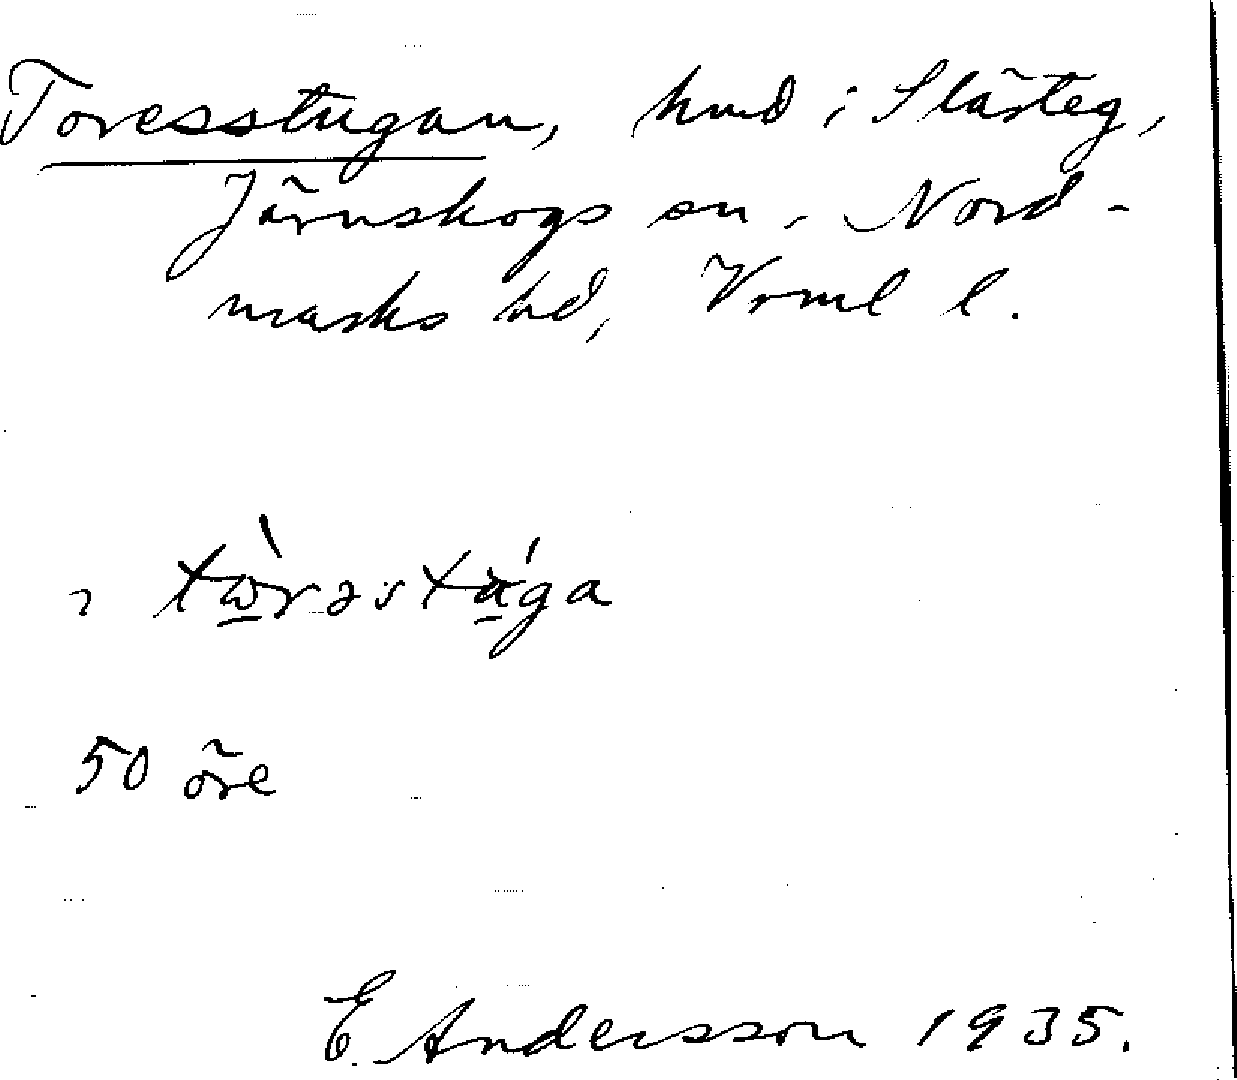 Toresstugan, hmd i Slärteg,
Järnskogs sn, Nord-
marks hd, Vrml l.
tὼrəstága
50 öre
E. Andersson 1935.